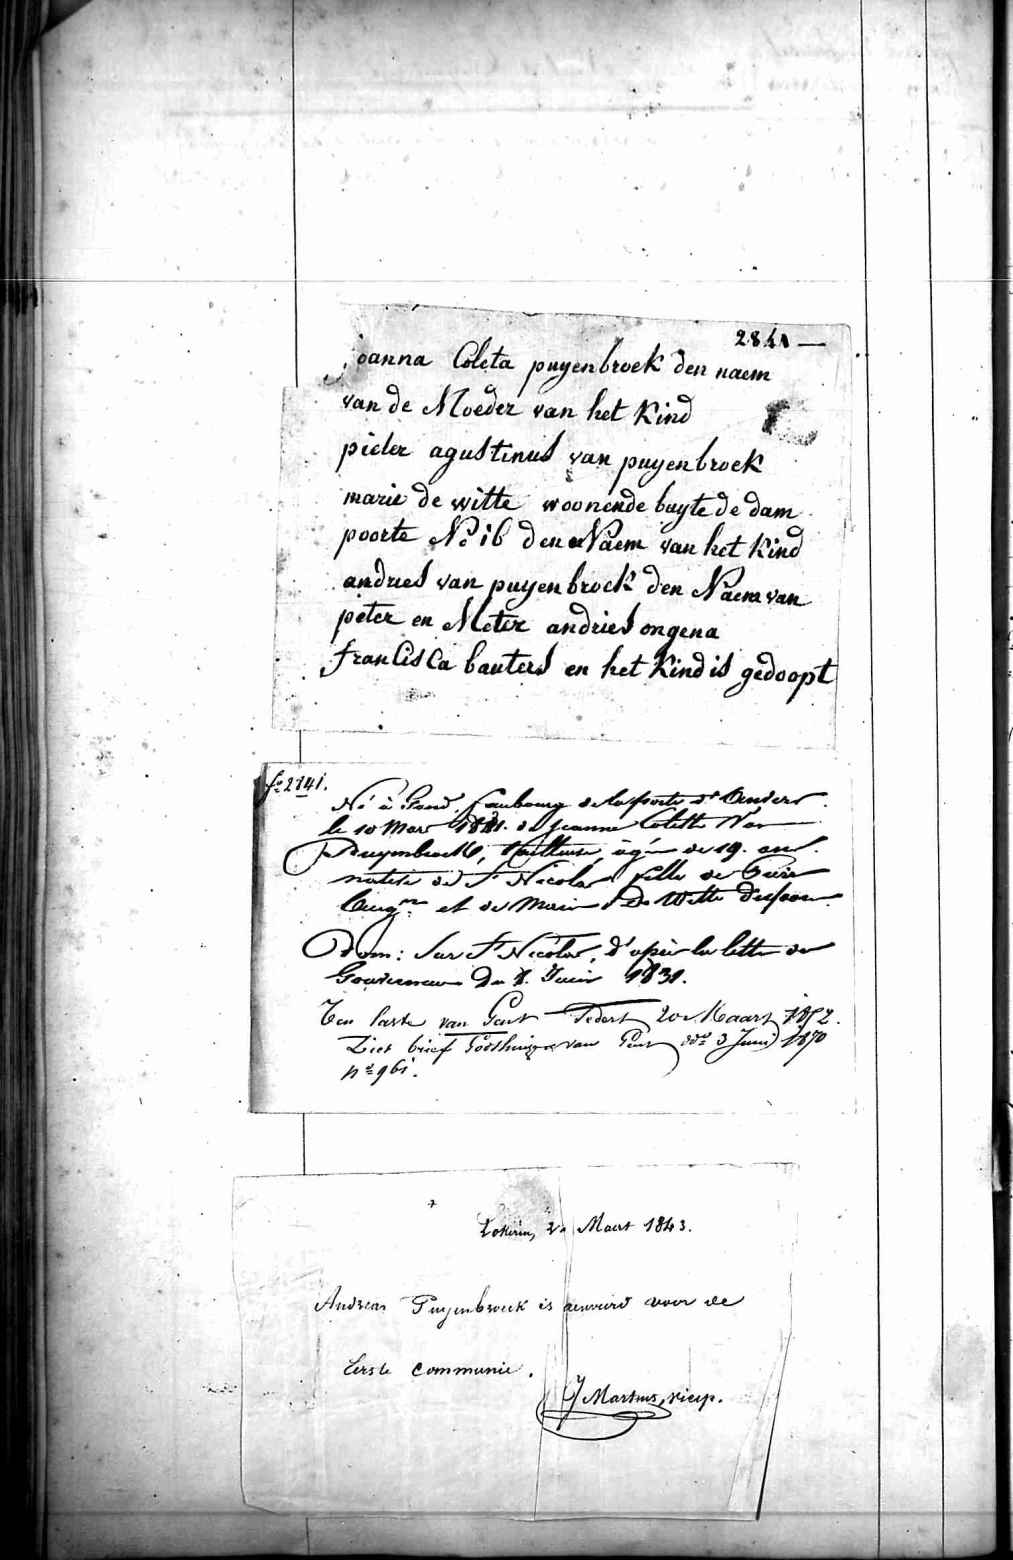 2841 —
joanna Coleta puyenbroek den naem
van de Moeder van het Kind
pieter agustinus van puyenbroek
marie de witte woonende buyte de dam
poorte No 16 den Naem van het Kind
andries van puyenbroek den Naem van
peter en Meter andries ongena
francisca bauters en het Kind is gedoopt
fo 2841.
Né à Gand, faubourg de la porte d'Anvers
le 10 Mars 1831. de Jeanne Colette Van
Puyenbroeck, tailleuse, âgée de 19. ans.
native de St Nicolas fille de Pierre
Augn et de Marie De Witte
Dom: Sur St Nicolas, d'après la lettre du
Gouverneur du Juin 1831.
Ten laste van Gent Sedert 20 Maart 1852.
Ziet brief Godshuizen van Gent ddo 3 Juni 1870
No 961.
Lokeren, 20 Maert 1843.
Andreas Puyenbroeck is aenveird voor de
Eerste communie.
J Martens, vicep.